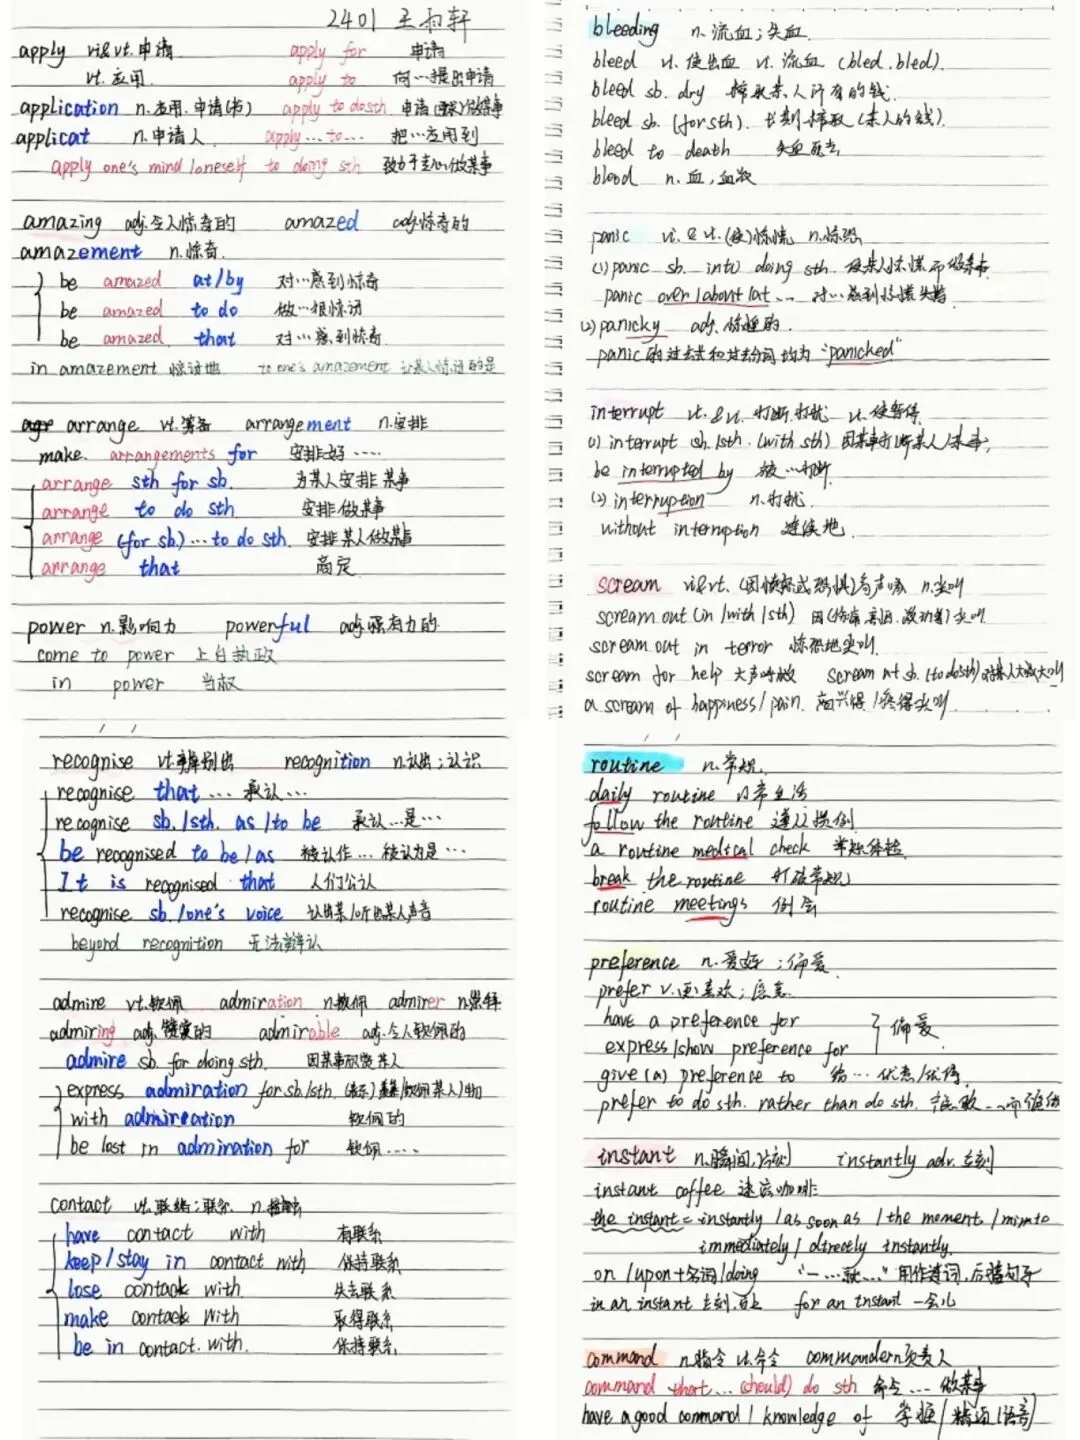 2401 王
apply vi&vt.申请 apply for 申请
vt.应用 apply to 向…提出申请
application n.应用.申请(书) apply to do sth 申请做某事
applicat n.申请人 apply…to… 把…应用到
apply one's mind/oneself to doing sth 致力于/专心做某事
amazing adj.令人惊奇的 amazed adj.惊奇的
amazement n.惊奇.
be amazed at/by 对…感到惊奇
be amazed to do 做…很惊讶
be amazed that 对…感到惊奇
in amazement 惊讶地 to one's amazement 让某人惊讶的是
arrange vt.筹备 arrangement n.安排
make arrangements for 安排好……
arrange sth for sb. 为某人安排某事
arrange to do sth 安排做某事
arrange (for sb.)…to do sth. 安排某人做某事
arrange that 商定
power n.影响力 powerful adj.强有力的
come to power 上台执政
in power 当权
recognise vt.辨别出 recognition n.认出;认识
recognise that… 承认…
recognise sb./sth. as/to be 承认…是…
be recognised to be/as 被认作… 被认为是…
It is recognised that 人们公认
recognise sb./one's voice 认出某/听出某人声音
beyond recognition 无法辨认
admire vt.钦佩 admiration n.钦佩 admirer n.崇拜
admiring adj.赞赏的 admirable adj.令人钦佩的
admire sb. for doing sth. 因某事欣赏某人
express admiration for sb./sth. 钦佩某人/物
with admireation 钦佩的
be lost in admiration for 钦佩……
contact vt.联络;联系 n.接触
have contact with 有联系
keep/stay in contact with 保持联系
lose contack with 失去联系
make contack with 取得联系
be in contact with. 保持联系
bleeding n.流血;失血
bleed vt.使出血 vi.流血 (bled.bled).
bleed sb. dry 榨取某人所有的钱.
bleed sb. (for sth). 长期榨取(某人的钱).
bleed to death 失血死去
blood n.血,血液
panic vi.&vt.(使)惊慌 n.惊恐
(1)panic sb. into doing sth. 使某人惊慌而做某事
panic over/about/at… 对…感到惊慌失措
(2)panicky adj.惊慌的.
panic的过去式和过去分词均为"panicked"
interrupt vt.&vi.打断.打扰 vt.使暂停
(1)interrupt sb./sth.(with sth) 因某事打断某人/某事;
be interrupted by 被…打断
(2)interruption n.打扰.
without interruption 连续地
scream vi&vt.(因愤怒或恐惧)高声喊 n.尖叫
scream out (in/with/sth) 因(疼痛、喜悦、激动等)尖叫
scream out in terror 惊恐地尖叫.
scream for help 大声呼救 scream at sb. (to do sth)对某人大喊大叫
a scream of happiness/pain. 高兴得/疼得尖叫.
routine n.常规.
daily routine 日常生活
follow the routine 遵从惯例
a routine medical check 常规体检
break the routine 打破常规
routine meetings 例会
preference n.爱好;偏爱
prefer v.更喜欢;愿意
have a preference for 偏爱
express/show preference for
give (a) preference to 给…优惠/优待
prefer to do sth. rather than do sth.
instant n.瞬间,片刻 instantly adv.立刻
instant coffee 速溶咖啡
the instant = instantly/as soon as/the moment/minute
immediately/directly instantly.
on/upon+名词/doing "一…就…"用作连词,后接句子
in an instant 立刻.马上 for an instant 一会儿
command n.指令 vt.命令 commander n.负责人
command that…(should) do sth 命令…做某事
have a good command/knowledge of 掌握/精通(语言)